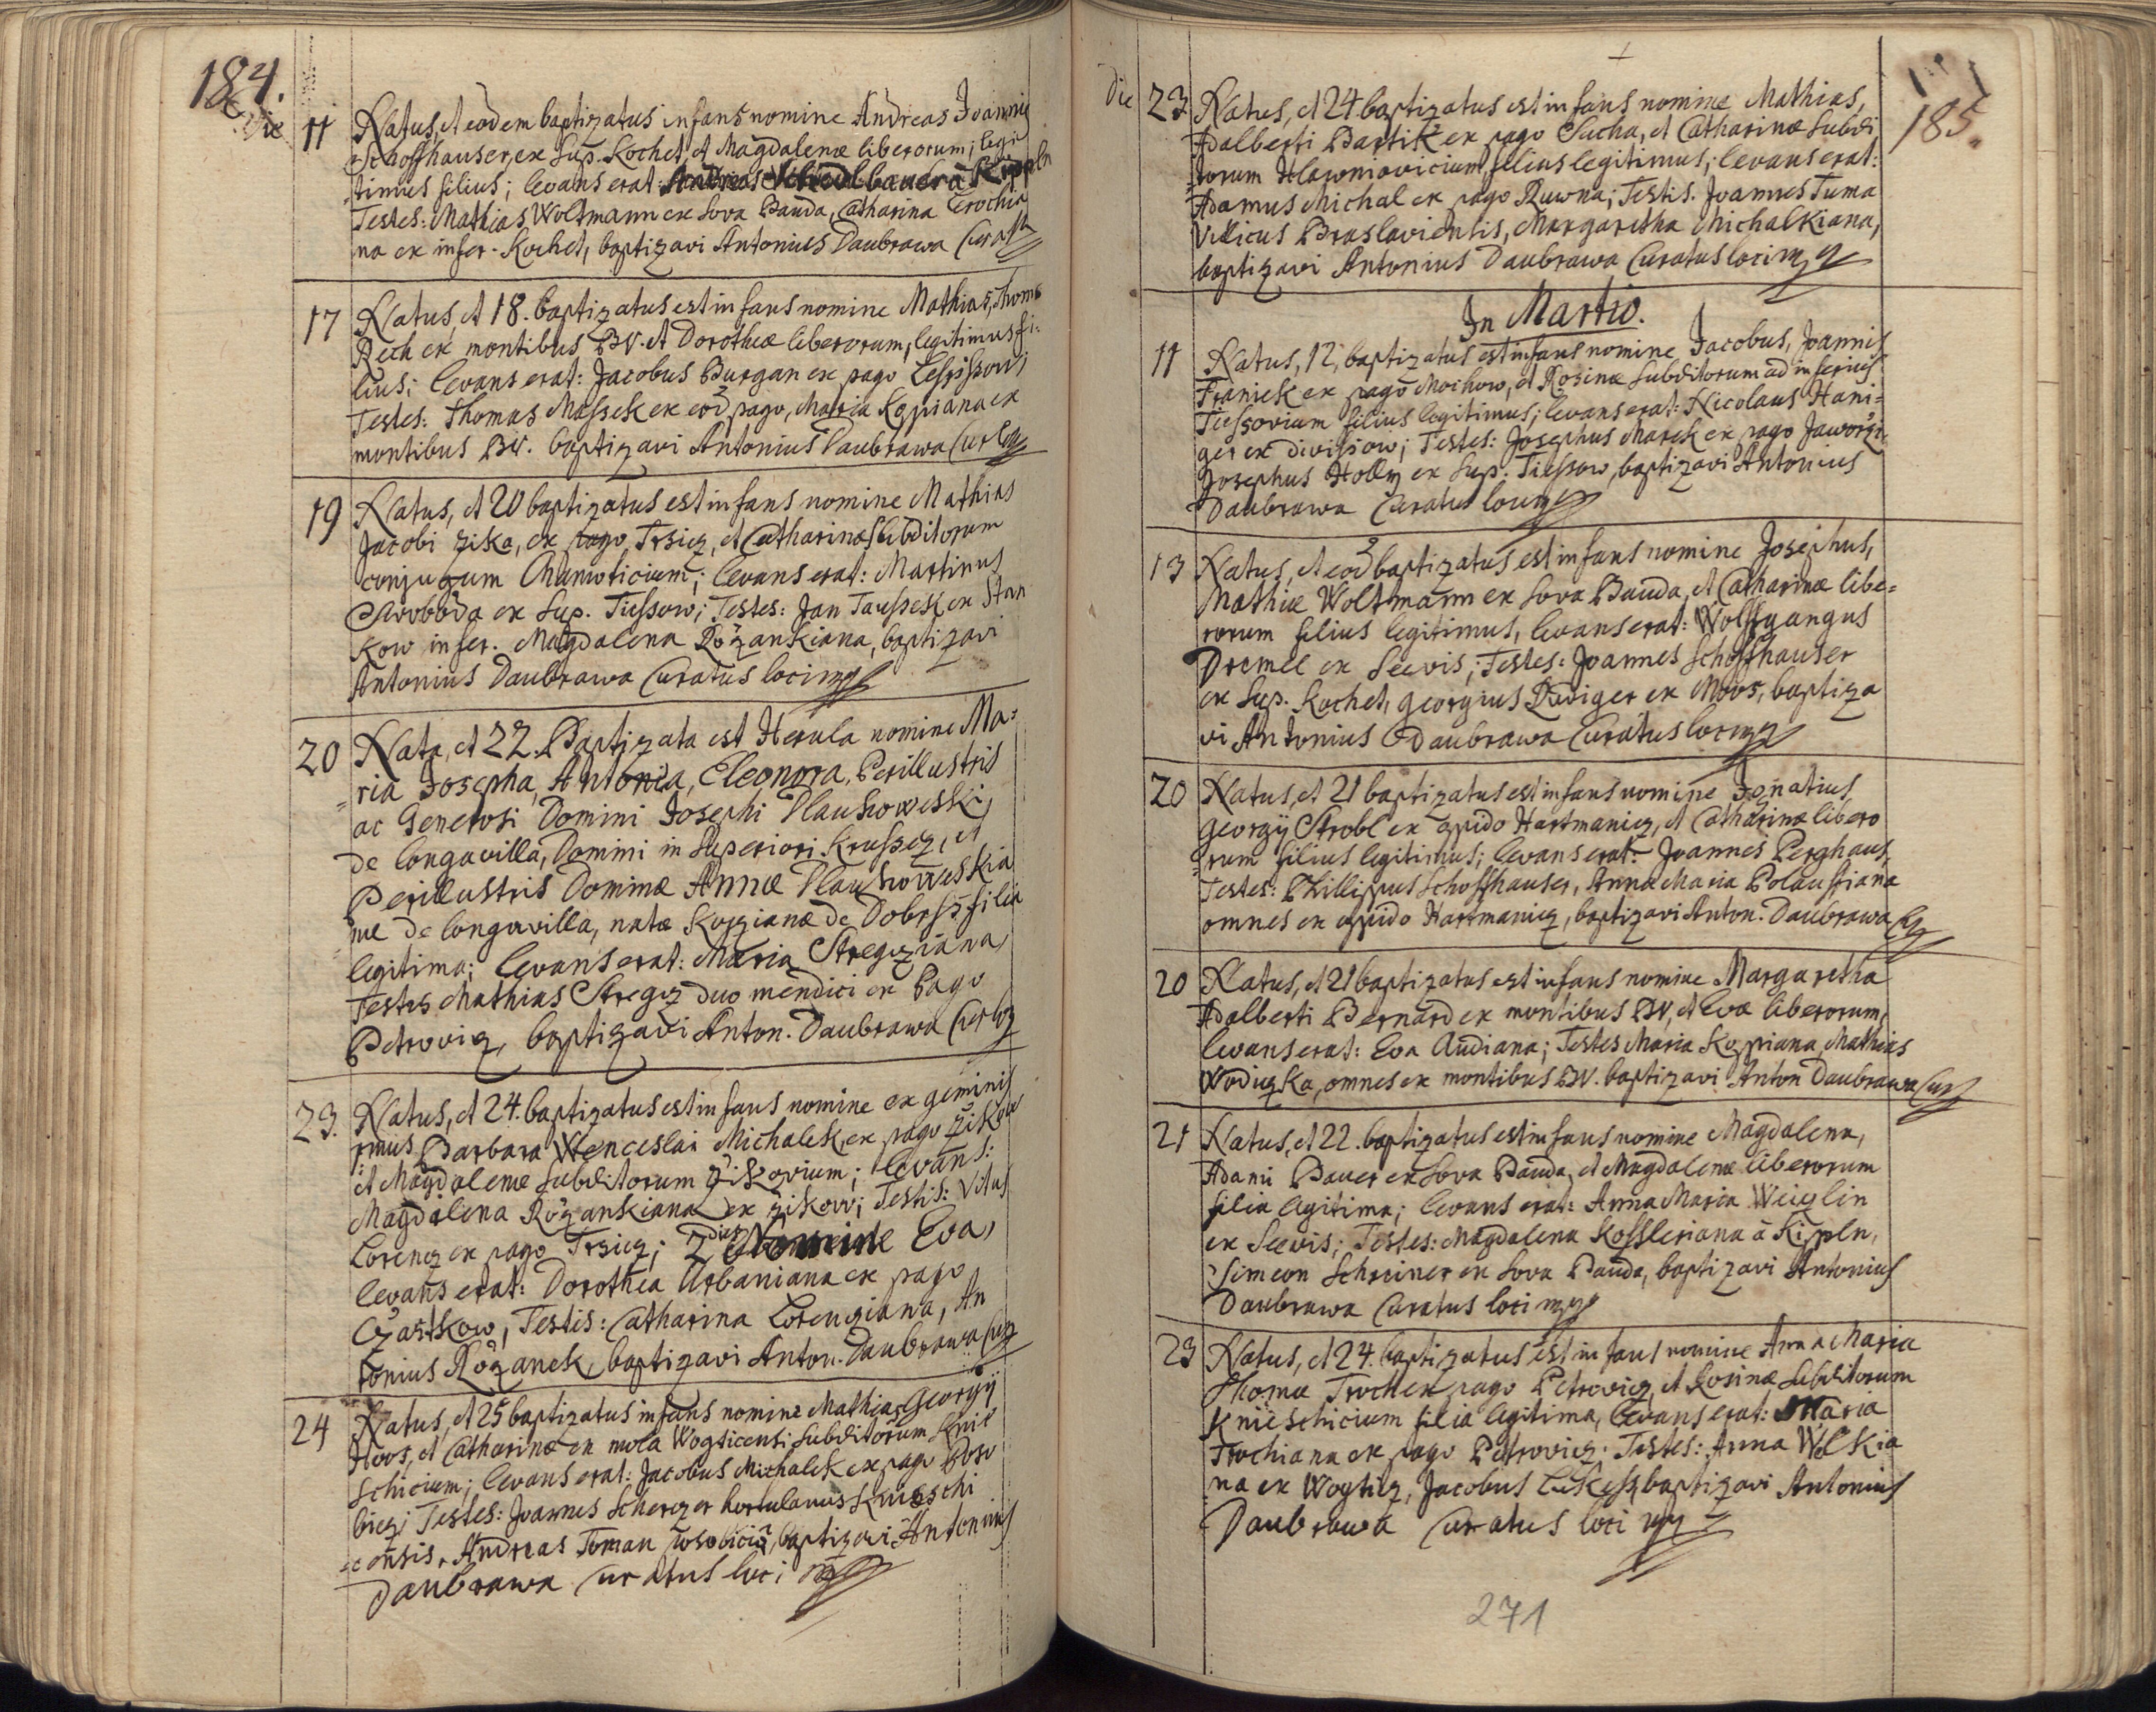 184.
Die
11 Natus, et eodem baptizatus infans nomine Andreas Joannis
Schoffhauser, ex Sup. Kochet, et Magdalenæ liberorum; legi
timus filius; levans erat: Andreas à Kippln
Testes: Mathias Woltmann ex Sova Bauda, Catharina Crochia
na ex infer. Kochet, baptizavi Antonius Daubrawa
17 Natus, et 18. baptizatus est infans nomine Mathias, Thomæ
Rech ex montibus BV. et Dorotheæ liberorum, legitimus fi:
lius; levans erat: Jacobus Burgan ex pago
Testes: Thomas Massek ex eod pago, Maria Kopiana ex
montibus BV. baptizavi Antonius Daubrawa
19 Natus, et 20 baptizatus est infans nomine Mathias
Jacobi zika, ex pago Trsicz, et Catharinæ Subditorum
conjugum; levans erat: Martinus
Swoboda ex Sup. Tiessow; Testes: Jan Taussek ex Stan
kow infer. Magdalena Růzankiana, baptizavi
Antonius Daubrawa Curatus loci mp
20 Nata, et 22. Baptizata est Herula nomine Ma:
ria Josepha, Antonia, Eleonora, Perillustris
ac Generosi Domini Josephi Dlauhoweski,
de longavilla, Domini in Superiori Krussecz, et
Perillustris Dominæ Annæ Dlauhoweskia
næ de longavilla, natæ Korzianæ de Dobrsz filia
legitima; levans erat: Maria Stregcziana,
Testis Mathias Stregcz duo mendici ex Pago
Petrovicz, baptizavi Anton. Daubrawa
23. Natus, et 24. baptizatus est infans nomine ex geminis
rmus Barbara Wenceslai Michalek, ex pago zikow
et Magdalenæ Subditorum Zikovium; levans:
Magdalena Růzankiana ex zikow; Testis: Vitus
Lorencz ex pago Trsicz; 2 Nomine Eva,
levans erat: Dorothea Urbaniana ex pago
Czastkow, Testis: Catharina Lorencziana, An
tonius Růzanek, baptizavi Anton. Daubrawa
24 Natus, et 25 baptizatus infans nomine Mathias Georgÿ
Hoos, et Catharinæ ex mola Wogticensi Subditorum Knie
schicium; levans erat: Jacobus Michalek ex pago Boso
bicz; Testes: Joannes Scherczer hortulanus Knieschi
censis, Andreas Toman Wsobicið, baptizavi Antonius
Daubrawa Curatus loci mp
die
185.
23 Natus, et 24 baptizatus est infans nomine Mathias,
Adalberti Bartik ex pago Sucha, et Catharinæ Subdi
torum Hlawniovicium filius legitimus; levans erat:
Adamus Michal ex pago Ruwna; Testis. Joannes Tuma
Villicus Braslaviensis, Margaretha Michalkiana,
baptizavi Antonius Daubrawa Curatus loci mp
In Martio.
11 Natus, 12, baptizatus est infans nomine Jacobus, Joannis
Franiek ex pago Mochow, et Rosinæ Subditorum ad inferius
Tiessovium filius legitimus; levans erat: Nicolaus Hani:
ger ex Divissow; Testes: Josephus Marek ex pago Jaworzi
Josephus Holly ex Sup. Tiessow, baptizavi Antonius
Daubrawa Curatus loci mp
13 Natus, et eod baptizatus est infans nomine Josephus,
Mathiæ Woltmann ex Sova Bauda, et Catharinæ libe:
rorum filius legitimus, levans erat: Wolffgangus
Dremel ex Seevis; Testes: Joannes Schoffhauser
ex Sup. Kochet, Georgius Rudiger ex Moos, baptiza
vi Antonius Daubrawa Curatus loci mp
20 Natus, et 21 baptizatus est infans nomine Ignatius
Georgÿ Strobl ex opido Hartmanicz, et Catharinæ libero
rum filius legitimus; levans erat: Joannes Perghaus
Testes: Phillippus Schoffhauser, Anna Maria
omnes ex oppido Hartmanicz, baptizavi Anton. Daubrawa
20 Natus, et 21 baptizatus est infans nomine Margaretha
Adalberti Bernard ex montibus BV, et Evæ liberorum,
levans erat: Eva Audiana; Testes Maria Koppiana, Mathias
Wodiczka, omnes ex montibus BV. baptizavi Anton Daubrawa
21 Natus, et 22. baptizatus est infans nomine Magdalena,
Adami Bauer ex Sova Bauda, et Magdalenæ liberorum
filia legitima; levans erat: Anna Maria Weiglin
ex Seevis; Testes: Magdalena Kossleriana à Kippln,
Simeon Schreiner ex Sova Bauda, baptizavi Antonius
Daubrawa Curatus loci mp
23 Natus, et 24. baptizatus est infans nomine Anna Maria
Thomæ Troch ex pago Petrovicz, et Rosinæ Subditorum
Knieschicium filia legitima, levans erat: Maria
Trochiana ex pago Petrovicz. Testes: Anna Wlkia
na ex Wogticz, Jacobus Lukess, baptizavi Antonius
Daubrawa Curatus loci mp
271